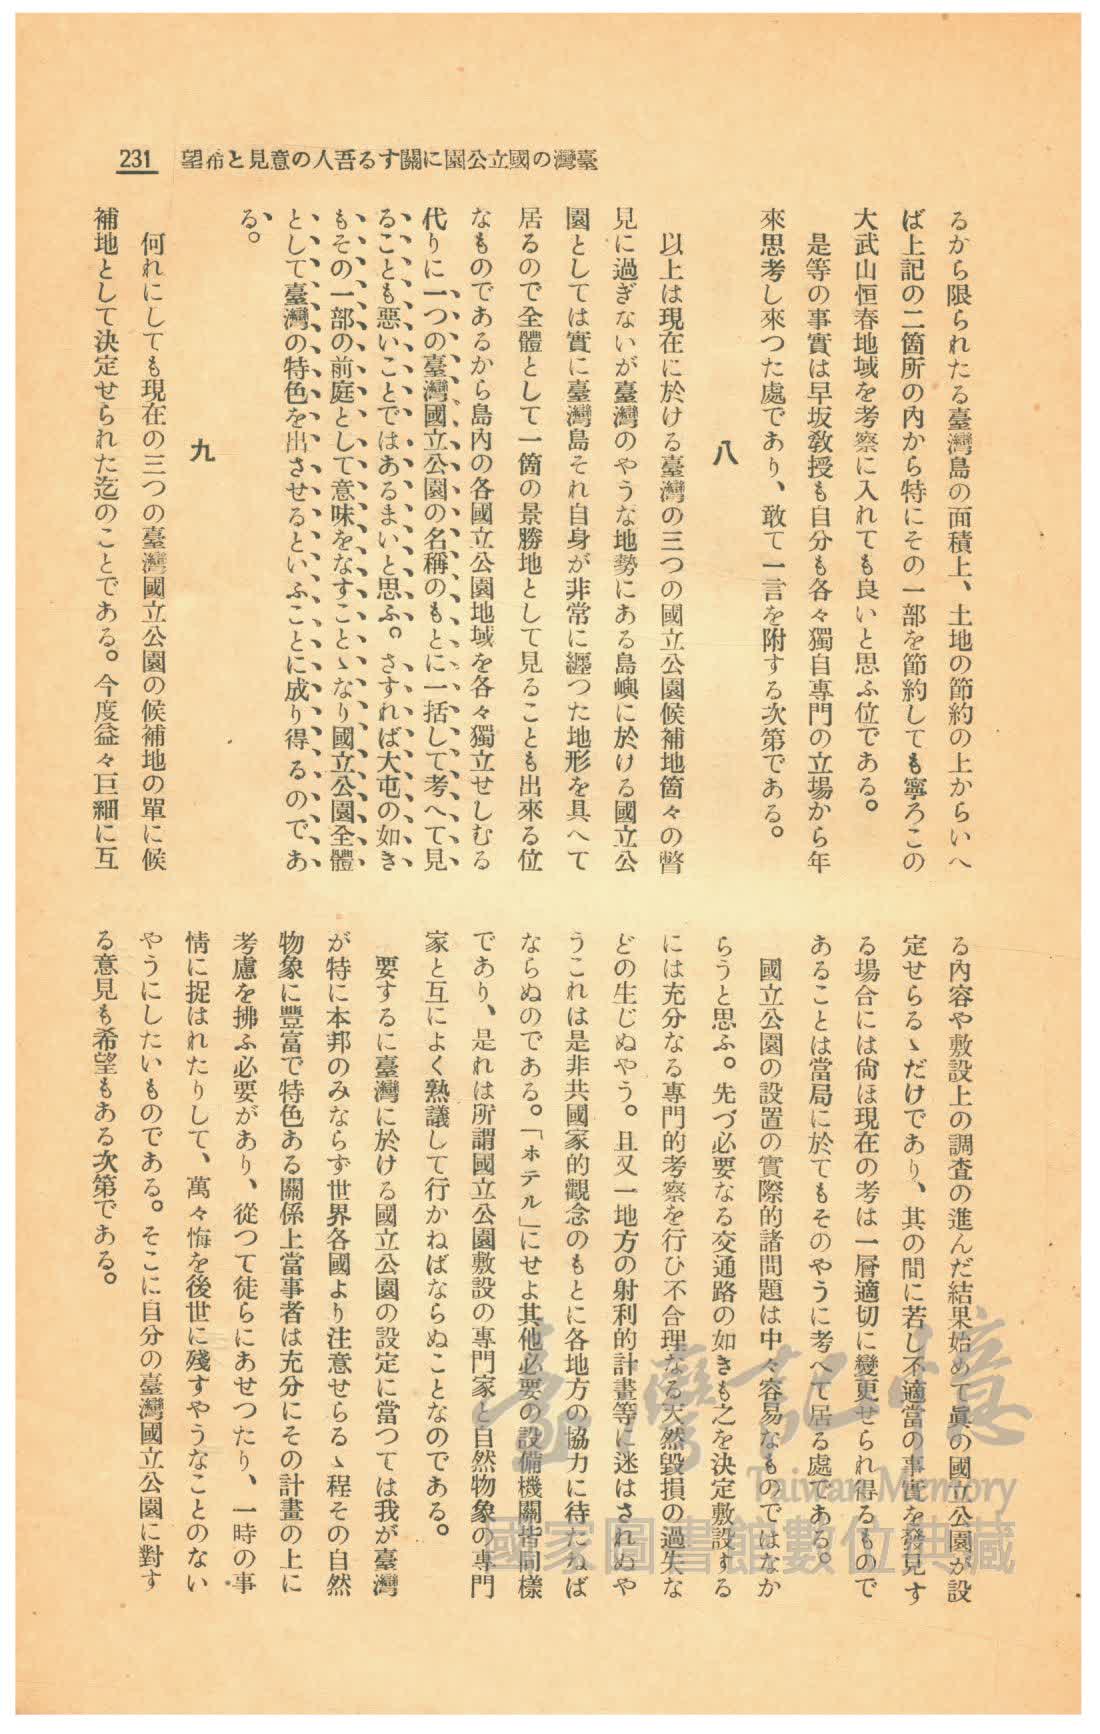 臺灣の國立公園に關する吾人の意見と希望
231
るから限られたる臺灣島の面積上、土地の節約の上からいへ
ば上記の二箇所の内から特にその一部を節約しても寧ろこの
大武山恒春地域を考察に入れても良いと思ふ位である。
是等の事實は早坂敎授も自分も各々獨自專門の立場から年
來思考し來つた處であり、敢て一言を附する次第である。
八
以上は現在に於ける臺灣の三つの國立公園候補地箇々の瞥
見に過ぎないが臺灣のやうな地勢にある島嶼に於ける國立公
園としては實に臺灣島それ自身が非常に纒つた地形を具へて
居るので全體として一箇の景勝地として見ることも出來る位
なものであるから島內の各國立公園地域を各々獨立せしむる
代りに一つの臺灣國立公園の名稱のもとに一括して考へて見
ることも惡いことではあるまいと思ふ。さすれば大屯の如き
もその一部の前庭として意味をなすことゝなり國立公園全體
として臺灣の特色を出させるといふことに成り得るのであ
る。
九
何れにしても現在の三つの臺灣國立公園の候補地の單に候
補地として決定せられた迄のことである。今度益々巨細に互
る內容や敷設上の調査の進んだ結果始めて眞の國立公園が設
定せらるゝだけであり、其の間に若し不適當の事實を發見す
る場合には尙ほ現在の考は一層適切に變更せられ得るもので
あることは當局に於てもそのやうに考へて居る處である。
國立公園の設置の實際的諸問題は中々容易なものではなか
らうと思ふ。先づ必要なる交通路の如きも之を決定敷設する
には充分なる專門的考察を行ひ不合理なる天然毀損の過失な
どの生じぬやう。且又一地方の射利的計畫等に迷はされぬや
うこれは是非共國家的觀念のもとに各地方の協力に待たねば
ならぬのである。「ホテル」にせよ其他必要の設備機關皆同樣
であり、是れは所謂國立公園敷設の專門家と自然物象の專門
家と互によく熟議して行かねばならぬことなのである。
要するに臺灣に於ける國立公園の設定に當つては我が臺灣
が特に本邦のみならず世界各國より注意せらるゝ程その自然
物象に豐富で特色ある關係上當事者は充分にその計畫の上に
考慮を拂ふ必要があり、從つて徒らにあせつたり、一時の事
情に捉はれたりして、萬々悔を後世に殘すやうなことのない
やうにしたいものである。そこに自分の臺灣國立公園に對す
る意見も希望もある次第である。
臺灣記憶
Taiwan Memory
國家圖書館數位典藏